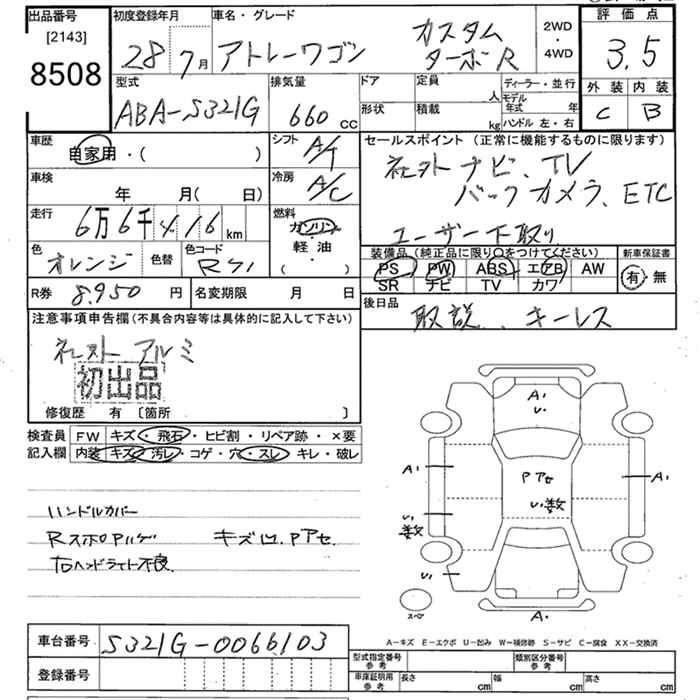 出品番号 初度登録年月 車名・グレード 2WD・4WD 評価点
[2143]
8508
28 7月 アトレーワゴン カスタム 3.5
ターボR
型式 排気量 ドア 定員 人 ディーラー・並行 外装 内装
ABA-S321G 660 cc 形状 積載 kg モデル年式 年 C B
ハンドル 左・右
車歴 自家用・( ) シフト A/T セールスポイント (正常に機能するものに限ります)
車検 年 月( 日) 冷房 A/C 社外ナビ、TV
バックカメラ、ETC
走行 6万6千416km 燃料 ガソリン ユーザー下取り
軽・油
( )
色 オレンジ 色替 色コード 装備品(純正品に限り○をつけてください) 新車保証書
PS PW ABS エアB AW 有・無
SR ナビ TV カワ
R券 8.950円 名変期限 月 日 後日品
取説、キーレス
注意事項申告欄(不具合内容等は具体的に記入して下さい)
社外アルミ
初出品
修復歴 有 [箇所 ]
検査員 FW キズ・飛石・ヒビ割・リペア跡・×要
記入欄 内装 キズ・汚レ・コゲ・穴・スレ・キレ・破レ
A1
U1
A1 PアセA1
U1数
U1
数
U1
スペ A1
ハンドルカバー
キズ凹、Pアセ
右ヘッドライト不良
A-キズ E-エクボ U-凹み W-補修跡 S-サビ C-腐食 XX-交換済
車台番号 S321G-0066103
登録番号
型式指定番号 参考 類別区分番号 参考
車庫証明用 参考 長さ cm 幅 cm 高さ cm